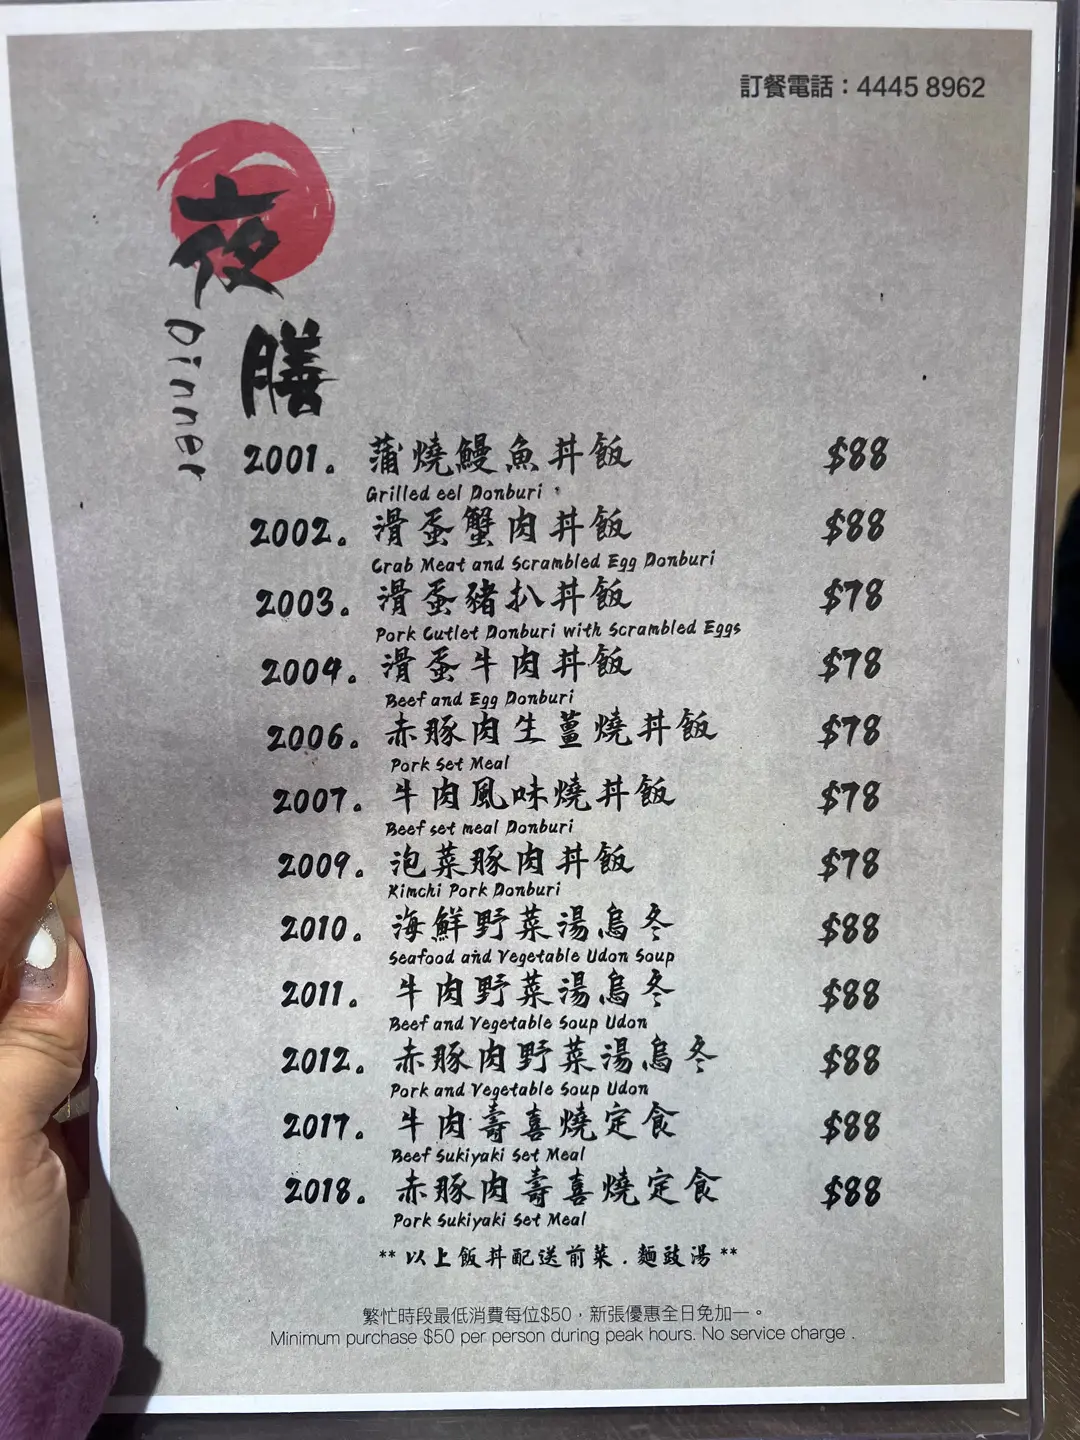 訂餐電話：4445 8962
夜膳
Dinner
2001。 蒲燒鰻魚丼飯 $88
Grilled eel Donburi
2002。 滑蛋蟹肉丼飯 $88
Crab Meat and Scrambled Egg Donburi
2003。 滑蛋豬扒丼飯 $78
Pork Cutlet Donburi with Scrambled Eggs
2004。 滑蛋牛肉丼飯 $78
Beef and Egg Donburi
2006。 赤豚肉生薑燒丼飯 $78
Pork Set Meal
2007。 牛肉風味燒丼飯 $78
Beef set meal Donburi
2009。 泡菜豚肉丼飯 $78
Kimchi Pork Donburi
2010。 海鮮野菜湯烏冬 $88
Seafood and Vegetable Udon Soup
2011。 牛肉野菜湯烏冬 $88
Beef and Vegetable Soup Udon
2012。 赤豚肉野菜湯烏冬 $88
Pork and Vegetable Soup Udon
2017。 牛肉壽喜燒定食 $88
Beef Sukiyaki Set Meal
2018。 赤豚肉壽喜燒定食 $88
Pork Sukiyaki Set Meal
**以上飯丼配送前菜．麵豉湯**
繁忙時段最低消費每位$50，新張優惠全日免加一。
Minimum purchase $50 per person during peak hours. No service charge .